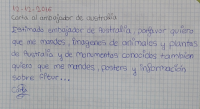 12-12-2016
Carta al embajador de australia
Estimado embajador de Australia: porfavor quiero
que me mandes, Imagenes de animales y plantas
de Australia y de monumentos conocidos tambien
quiero que me mandes, posters y información
sobre